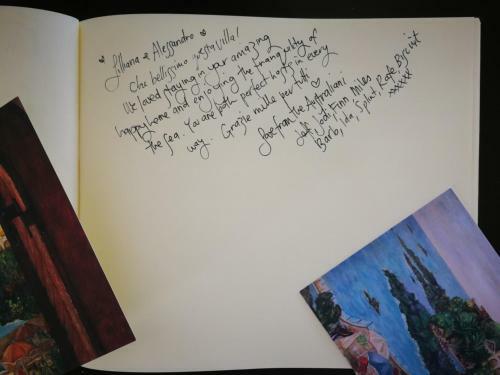 Lilliana & Alessandro
Che bellissimo questa Villa!
We loved staying in your amazing
happy home and enjoying the tranquility of
the sea. You are both perfect hosts in every
way. Grazie mille per tutti
Love from the Australiani
Jodi, Finn Miles
Barb, Ida,
xxxxxx